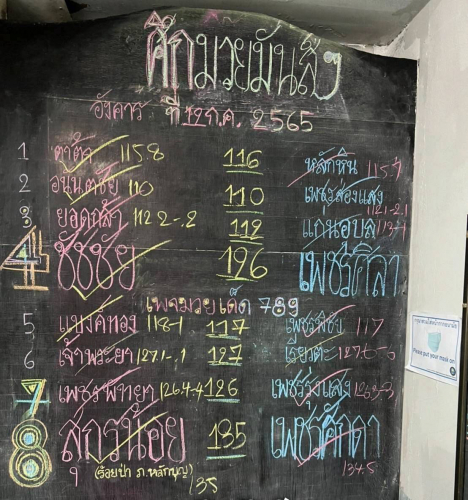 ศึกมวยมันส์ๆ
อังคาร ที่ 12 ก.ค. 2565
1 ตาต้า 115.8 116 หลักหิน 115.7
2 อนันตชัย 110 110 เพชรส่องแสง
3 ยอดกล้า 112.2-.2 112 แก่นอุบล
4 ชัชชัย 126 เพชรศิลา
เพจมวยเด็ด 789
5 แบงค์ทอง 118-1 117 เพชรพิชัย 117
6 เจ้าพระยา 127.1-.1 127
7 เพชรพิทยา 126.4-.4 126 เพชรรุ่งแสง
8 สุกรน้อย 135 เพชรศักดา
(ร้อยป่า ภ.หลักบุญ) 135 134.5
Please put your mask on